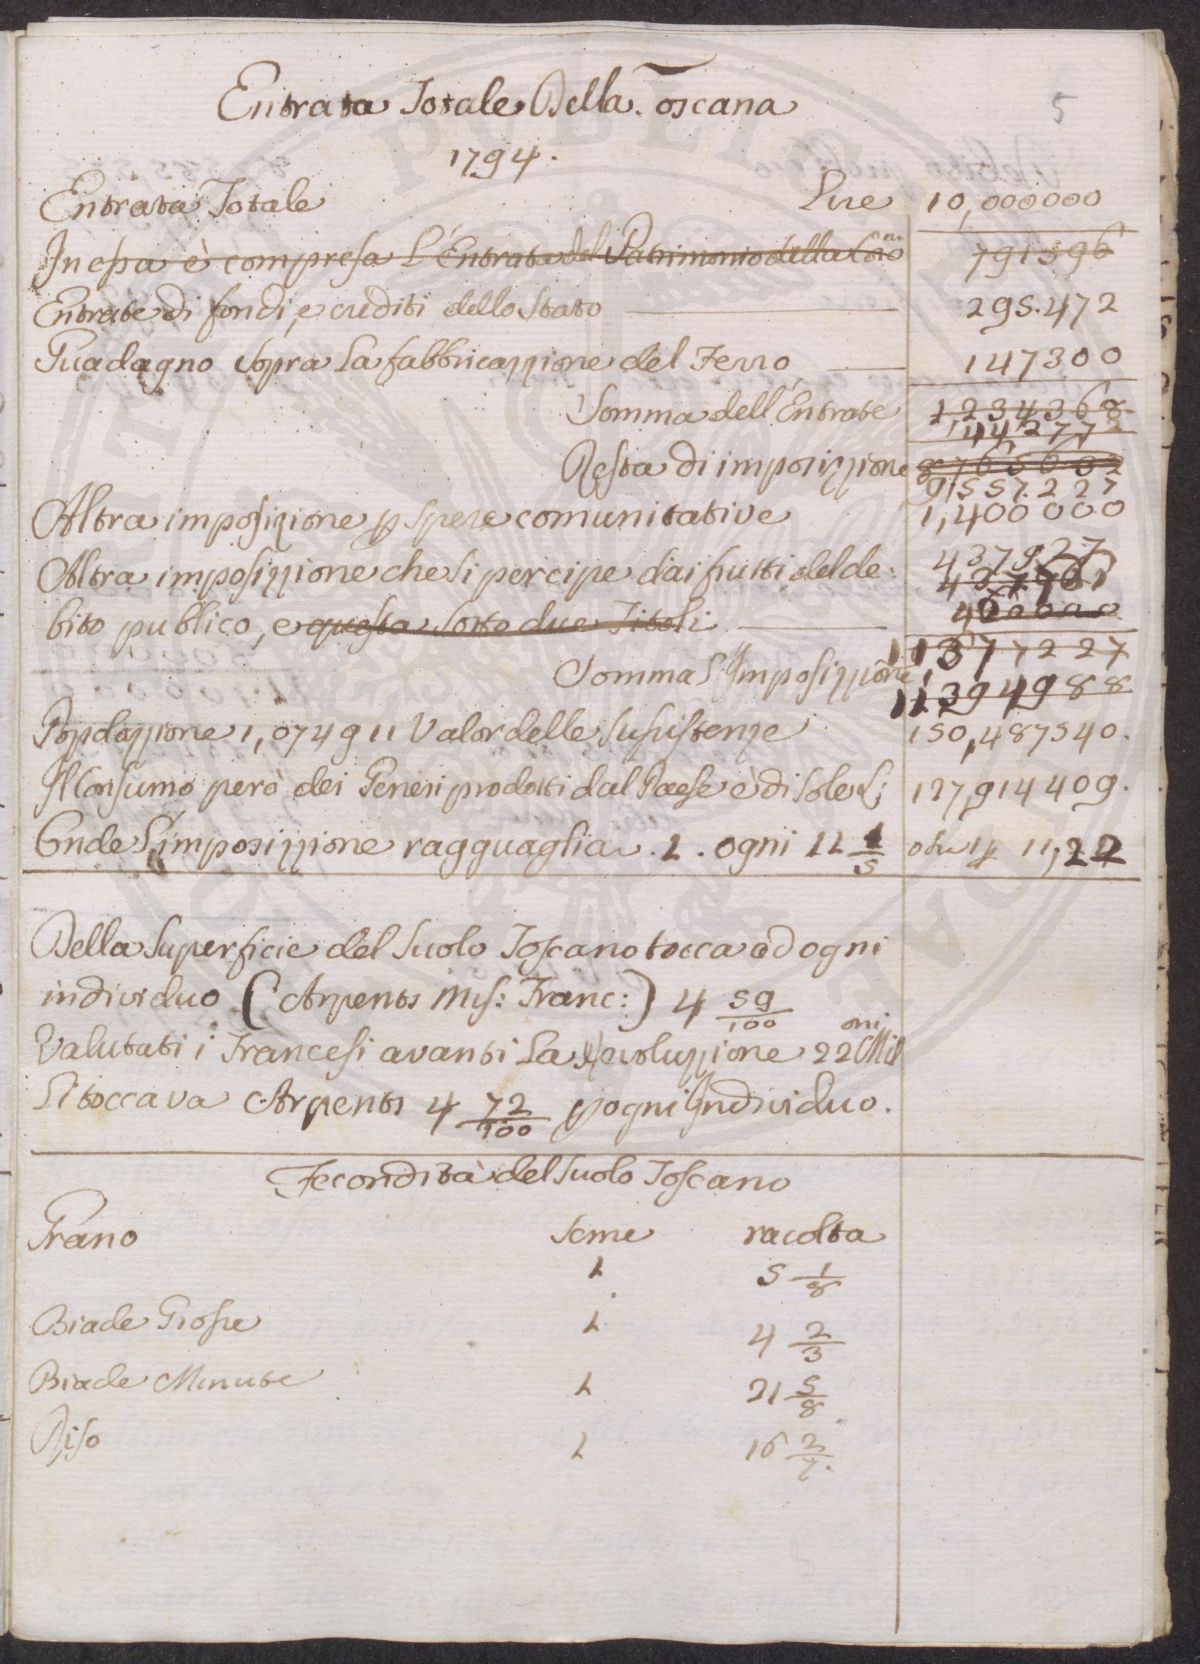 Entrata Totale Della Toscana
5
1794.
Entrata Totale Lire 10,000000
In essa è compresa L'Entrata del Patrimonio della Coro.na 791596
Entrate di fondi, e crediti dello Stato 295.472
Guadagno sopra la fabbricazzione del Ferro 147300
Somma dell'Entrate 1234368
442772
Resta di imposizzione 8765632
9557.227
Altra imposizione p spese comunitative 1,400000
437927
Altra imposizzione che si percipe dai frutti del de:
bito publico, e questa sotto due Titoli 400000
Somma L'Imposizzione 11377227
11394988
Popolazzione 1,074911 Valor delle sussistenze 150,487540.
Il Consumo però dei Generi prodotti dal Paese è di sole L: 127,914409.
Onde L'imposizzione ragguaglia . 1 . ogni 11 1/5 11,22
Della superficie del suolo Toscano tocca ad ogni
individuo (Arpents Mis: Franc:) 4 59/100
Valutati i Francesi avanti La Revoluzzione 22 Milioni
Li toccava Arpents 4 72/100 p ogni Individuo.
Fecondità del suolo Toscano
Grano seme racolta
1 5 1/8
Biade Grosse 1 4 2/3
Biade Minute 1 21 5/8
Riso 1 16 2/7.